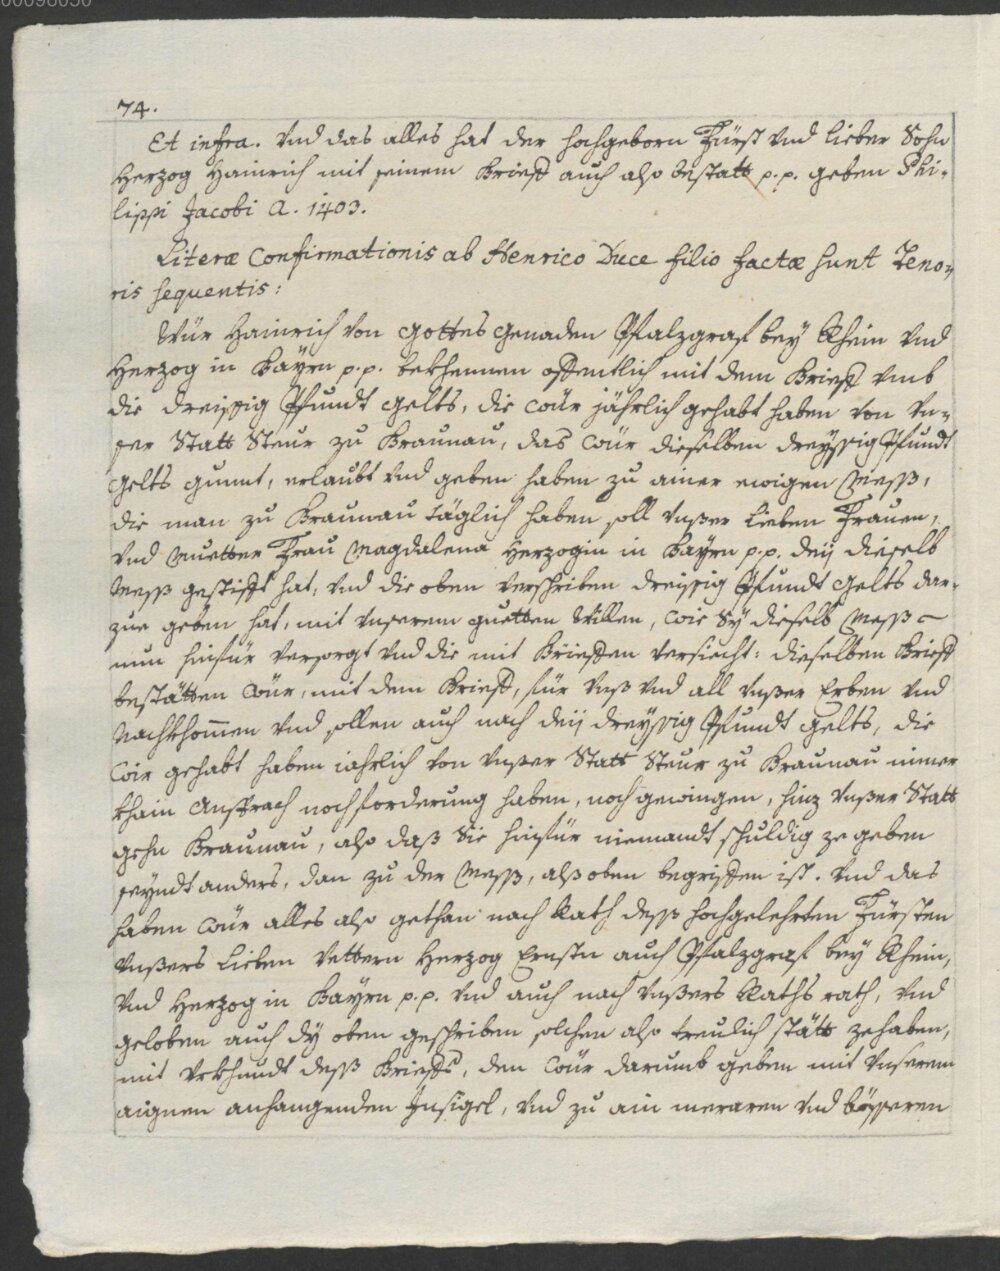 00098030
74.
Et infra. Vnd das alles hat der hochgeborn Fürst vnd lieber Sohn
Herzog Hainrich mit seinem Brieff auch also bestatt p.p. geben Phi-
lippi Jacobi A. 1403.
Literæ Confirmationis ab Henrico Duce filio factæ sunt Teno-
ris sequentis:
Wür Hainrich von Gottes Genaden Pfalzgraf bey Rhein vnd
Herzog in Bayrn p.p. bekhennen offentlich mit dem Brieff vmb
die dreissig Pfundt Gelts, die wür jährlich gehabt haben von Vn-
ser Statt Steur zu Braunau, das wür dieselben dreyssig Pfundt
Gelts gunnt, erlaubt vnd geben haben zu ainer ewigen Mess,
die man zu Braunau täglich haben soll vnßer lieben Frauen,
vnd Muetter Frau Magdalena Herzogin in Bayrn p.p. dij dieselb
Mess gestifft hat, vnd die oben verschriben dreissig Pfundt Gelts dar-
zue geben hat, mit vnserem guetten Willen, wie Sy dieselb Mess
nun hinfür versorgt vnd die mit Brieffen versiecht: dieselben Brieff
bestätten wür, mit dem Brieff, für vnß vnd all vnßer Erben vnd
Nachkhommen vnd sollen auch nach dij dreyssig Pfundt Gelts, die
wir gehabt haben jahrlich von vnßer Statt Steur zu Braunau immer
khain Ansprach noch forderung haben, noch gewingen, hinz vnßer Statt
gehn Braunau, also daß Sie hinfür niemandt schuldig ze geben
seyndt anders, dan zu der Mess, alß oben begriffen ist. Vnd das
haben wür alles also gethan nach Rath dess hochgelehrten Fürsten
vnßers lieben Vettern Herzog Ernstn auch Pfalzgraf bey Rhein,
vnd Herzog in Bayrn p.p. vnd auch nach vnßers Raths rath, vnd
geloben auch dy oben geschriben solchen also treulich stätt zehaben,
mit Vrkhundt dess Brieffs, den wür darumb geben mit vnserem
aignen anhangenden Insigel, vnd zu ain meraren vnd bösseren